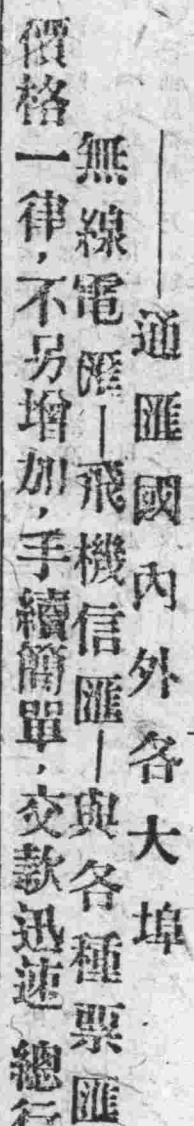 ——通匯國內外各大埠
無線電匯—飛機信匯—與各種票匯
價格一律，不另增加，手續簡單，交款迅速 總行